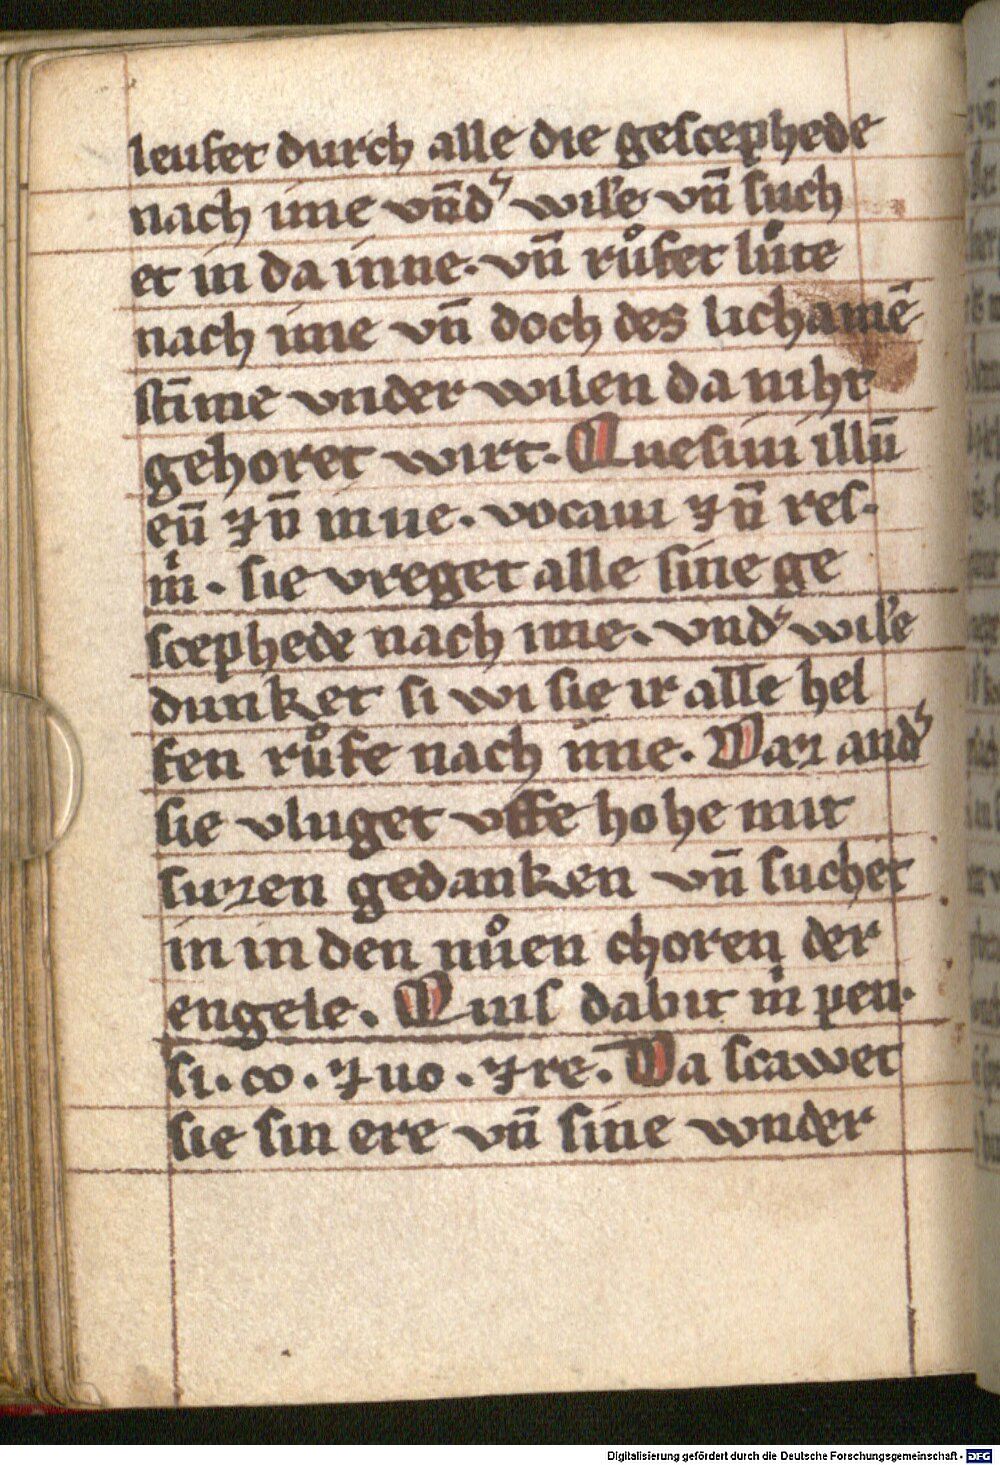 leufet durch alle die gescephede
nach ime vn̄dˢ wile vn̄ such
et in da inne. vn̄ růfet lůte
nach ime vn̄ doch des lichamē
stīme vnder wilen da niht
gehoret wirt. Quesiui illū
eū ⁊ n̄ inue. vocaui ⁊ n̄ res.
m̍. sie vreget alle sine ge
scephede nach ime. vndˢ wile
dunket si wi sie ir alle hel
fen růfe nach ime. Daz andˢ
sie vluget vffe hohe mit
suzen gedanken vn̄ suchet
in in den nůen choren der
engele. Quis dabit m̍ pen.
si. co. ⁊ uo. ⁊ re. Da scawet
sie sin ere vn̄ sine wnder
Digitalisierung gefördert durch die Deutsche Forschungsgemeinschaft - DFG